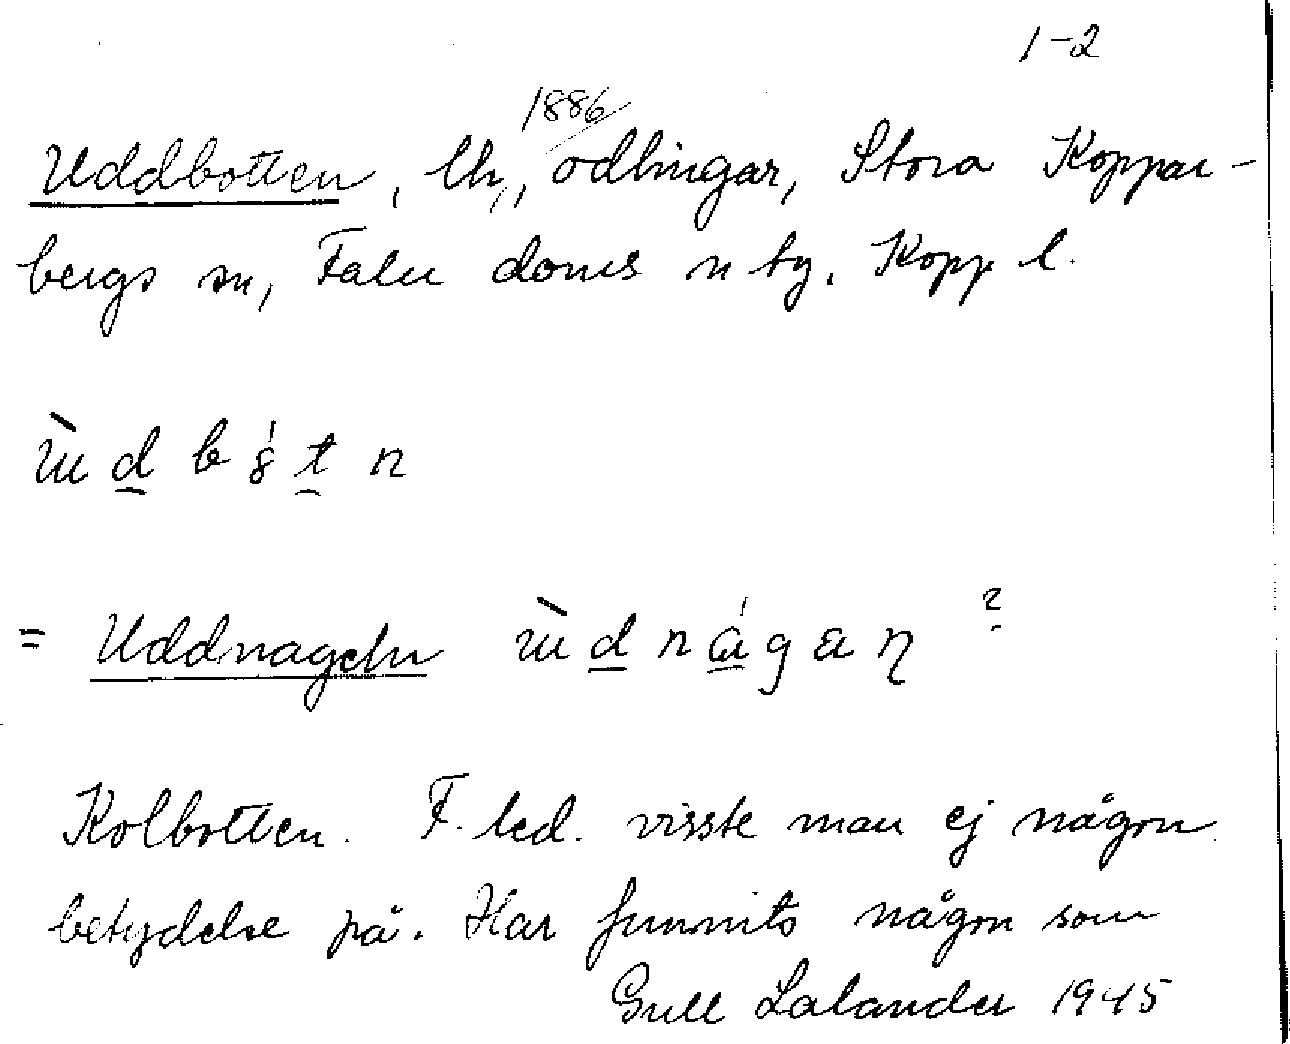 1-2
1886
Uddbotten, lh, odlingar, Stora Koppar-
bergs sn, Falu doms n tg. Kopp l.
ù d b ó t n
= Uddnageln ù d n á g a n ?
Kolbotten. F. led. visste man ej någon
betydelse på. Har funnits någon som
Gull Lalander 1945